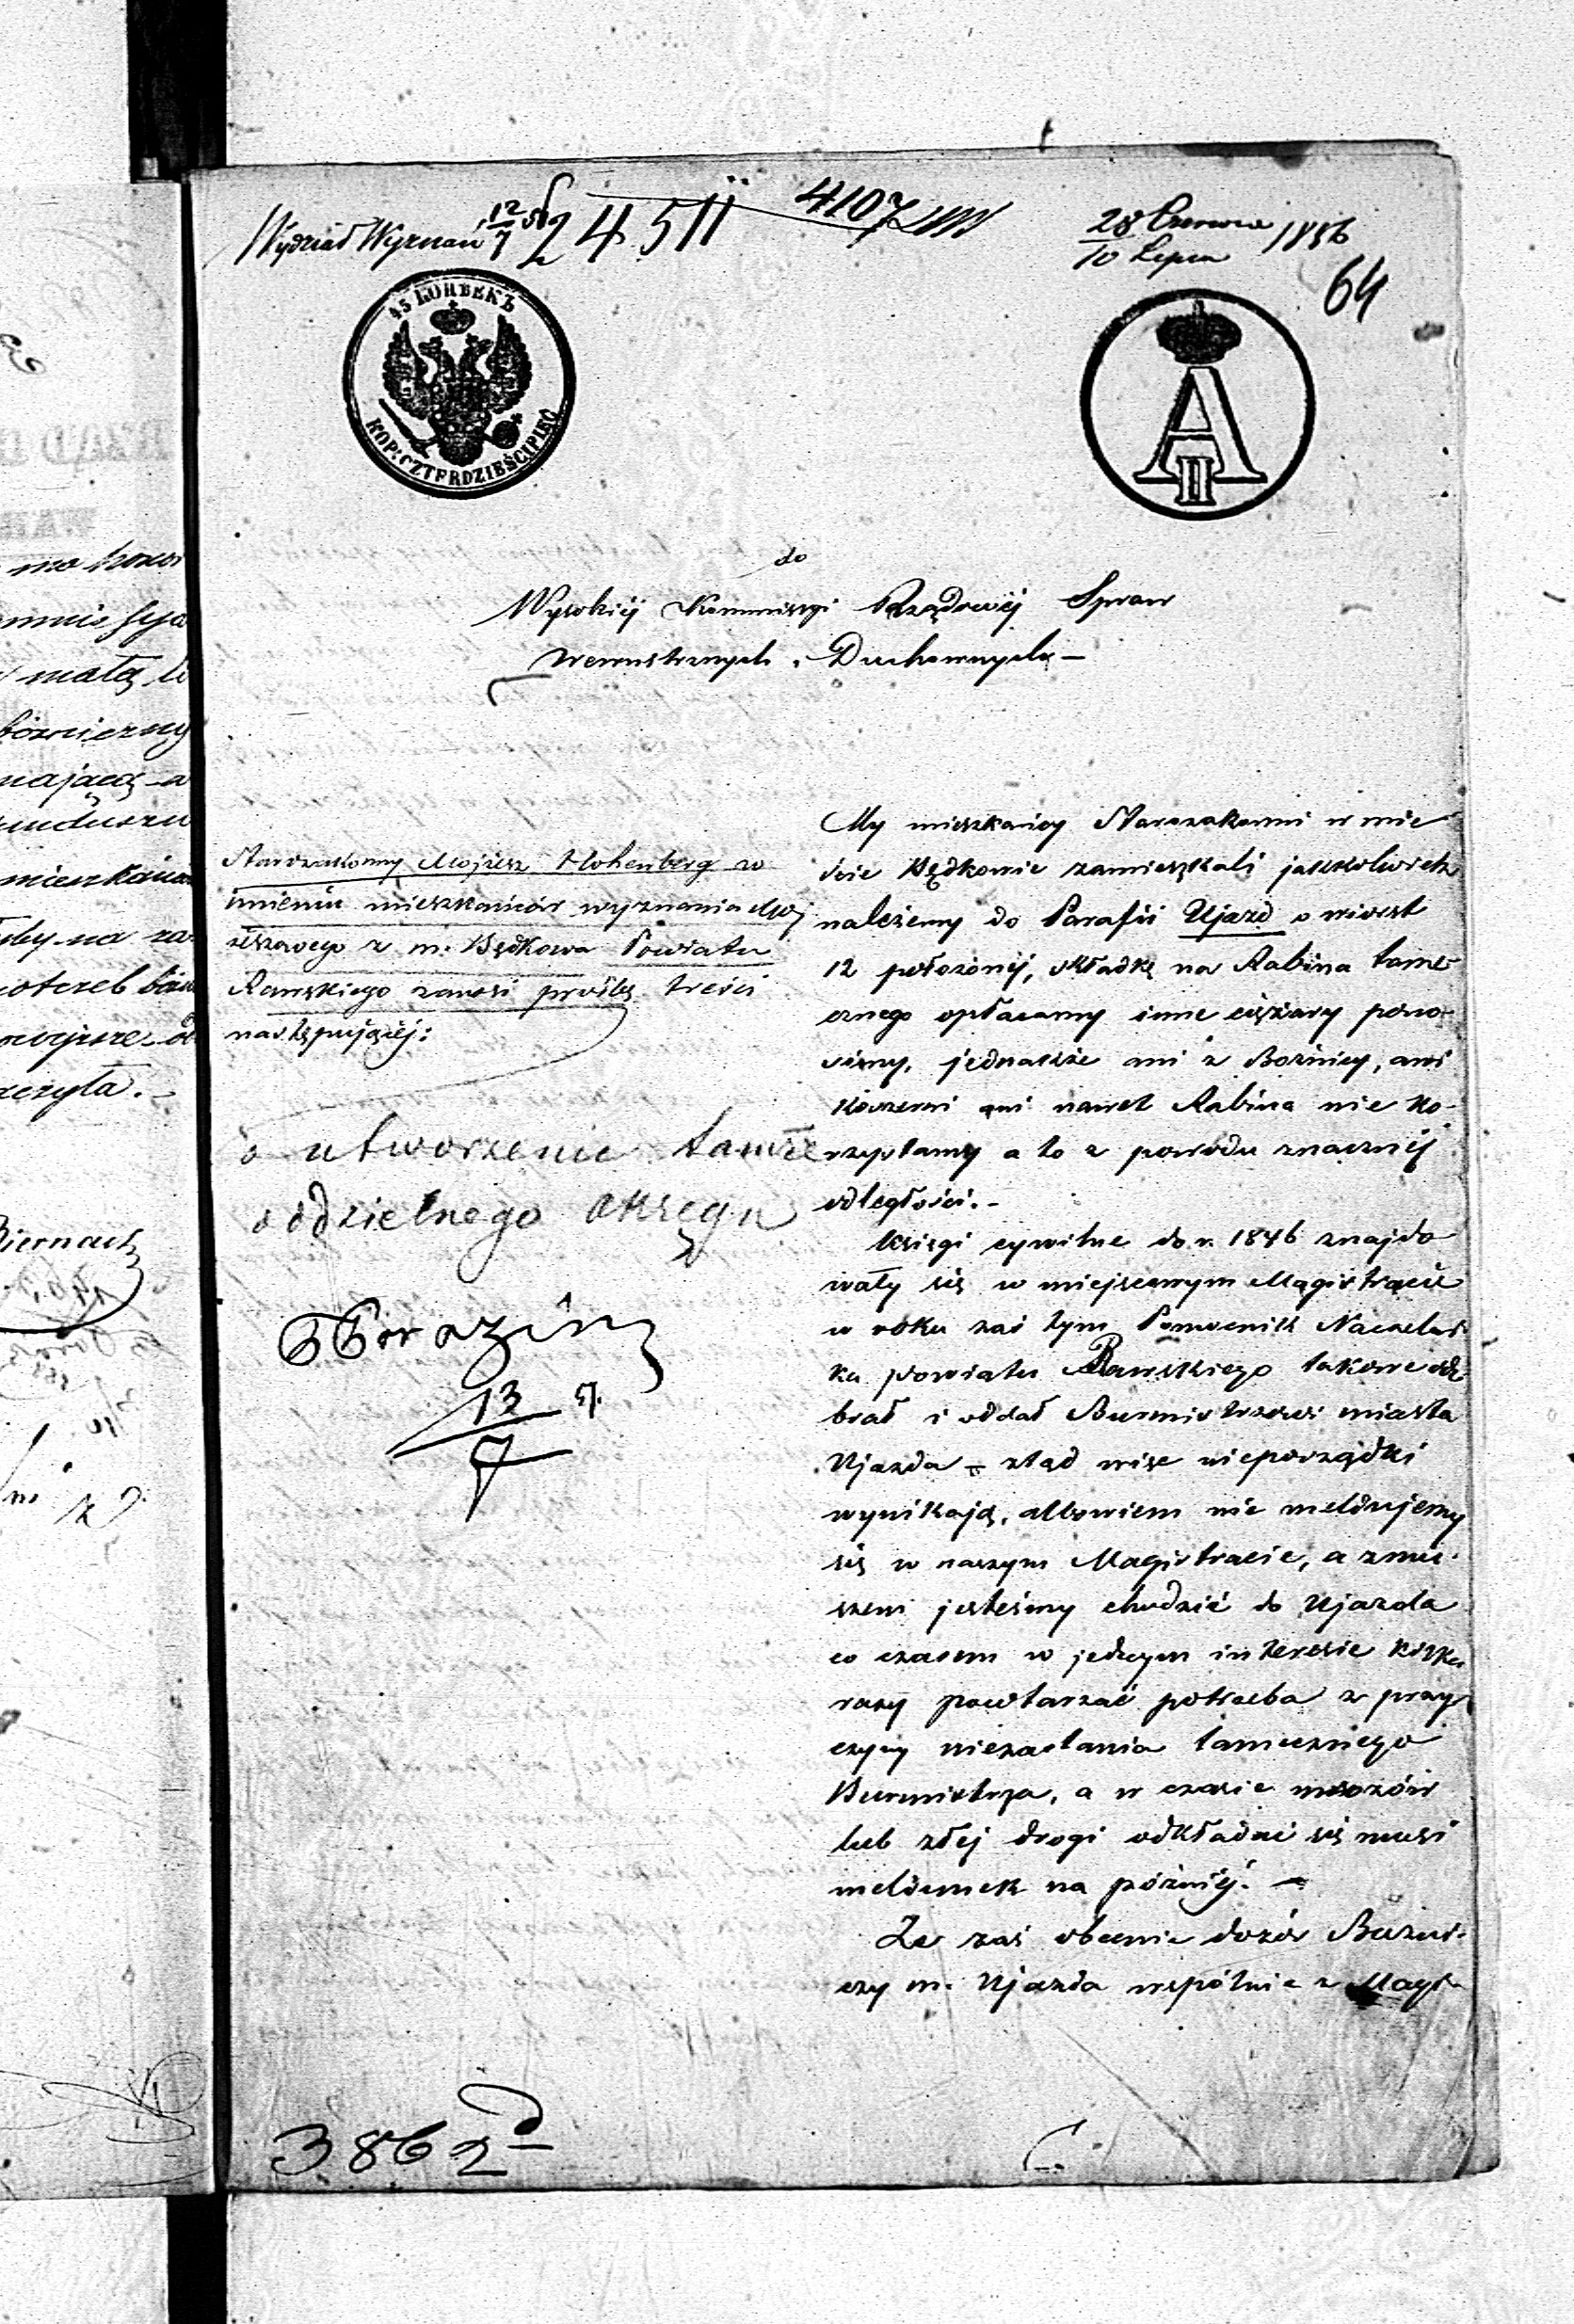 Wydział Wyznań 12/7 56
24511
4107
28 Czerwca / 10 Lipca 1856
64
45 KOPEEKЪ
KOP: CZTERDZIEŚCI PIĘĆ
A II
do
Wysokiéj Kommissyi Rządowéj Spraw
Wewnętrznych i Duchownych –
Starozakonny Mojżesz Hohenberg w
imieniu mieszkańców wyznania Moj
żeszowego z m: Będkowa Powiatu
Rawskiego zanosi prośbę treści
następującéj:
o utworzenie tamże
oddzielnego okręgu
13/7
3862
My mieszkańcy Starozakonni w mie
ście Będkowie zamieszkali jakkolwiek
należemy do Parafii Ujazd o wiorst
12 położonéj, składkę na Rabina tame
cznego opłacamy i inne ciężary pono-
siemy, jednakże ani z Bożnicy, ani
Koszerni ani nawet Rabina nie ko-
rzystamy a to z powodu znacznéj
odległości. –
Księgi cywilne do r. 1846 znajdo
wały się w miejscowym Magistracie
w roku zaś tym Pomocnik Naczelni
ka powiatu Rawskiego takowe ode
brał i oddał Burmistrzowi miasta
Ujazda – ztąd więc nieporządki
wynikają, albowiem nie meldujemy
się w naszym Magistracie, a zmu-
szeni jesteśmy chodzić do Ujazda
co czasem w jednym interesie kilka
razy powtarzać potrzeba z przy
czyny niezastania tamecznego
Burmistrza, a w czasie mrozów
lub złéj drogi odkładać się musi
meldunek na późniéj. –
Że zaś obecnie dozór Bużni-
czy m. Ujazda wspólnie z Magi-
mieszkańców
Biernack